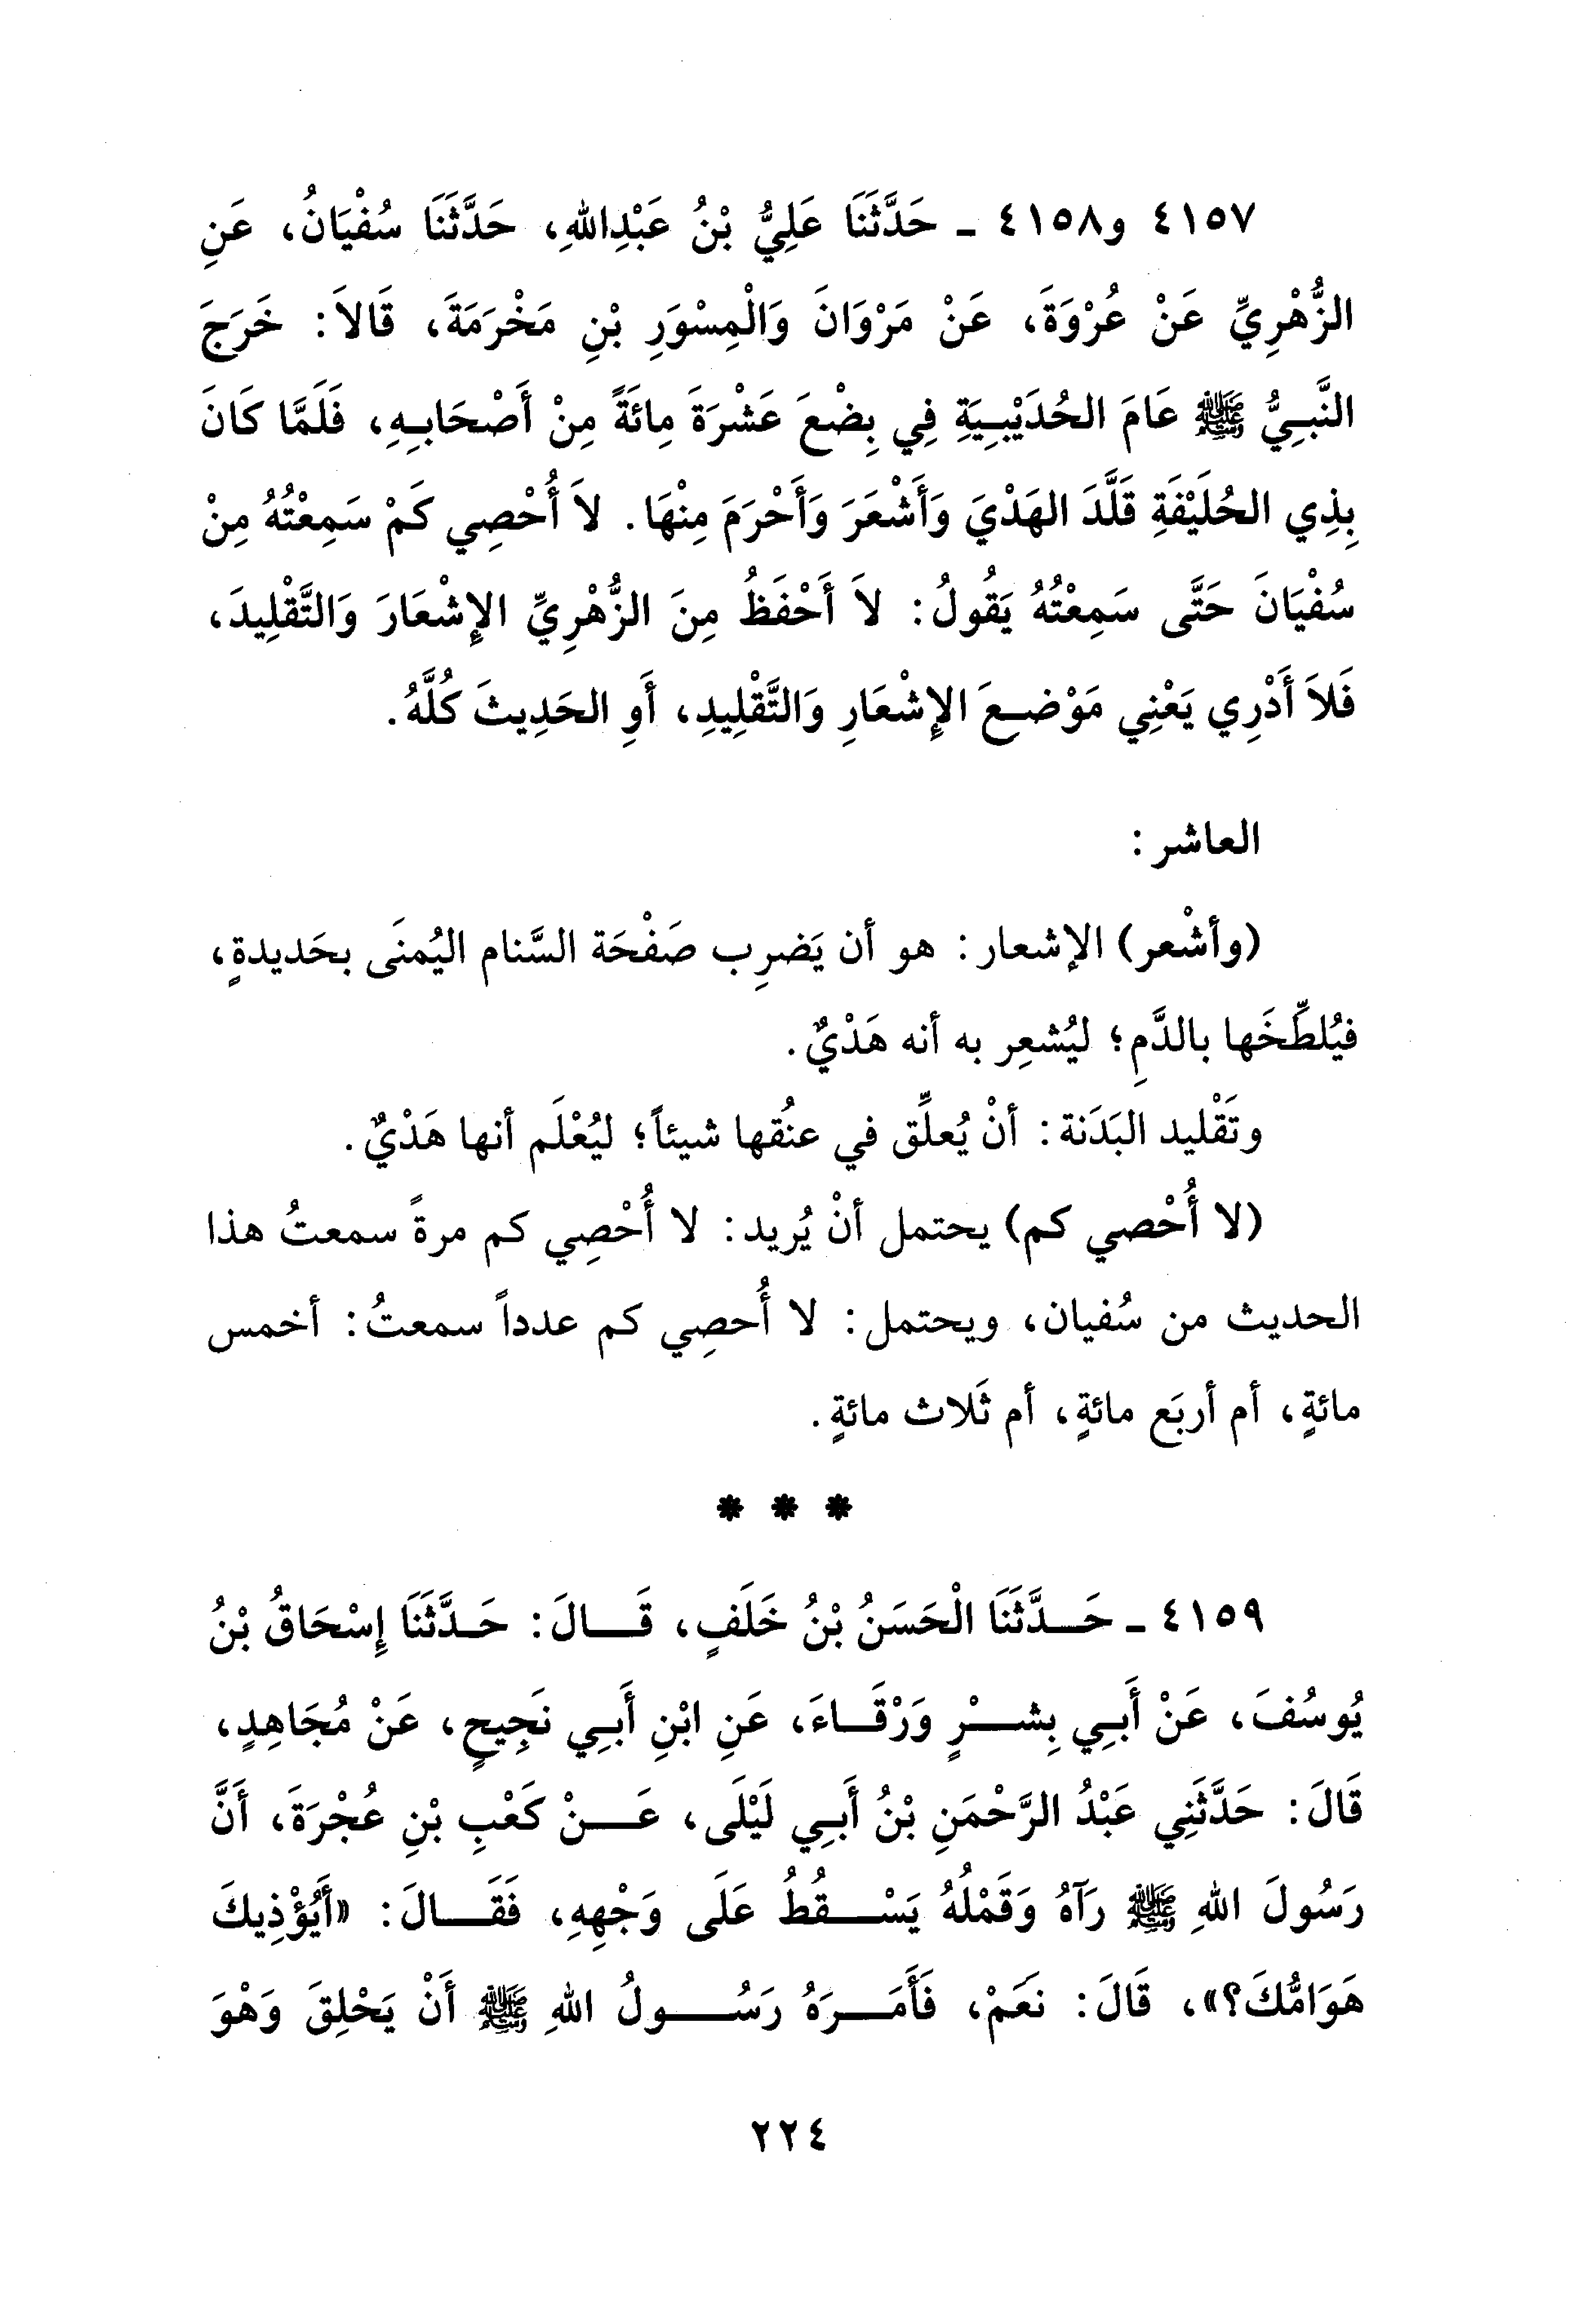 ٤١٥٧ و٤١٥٨ ـ حَدَّثَنَا عَلِيُّ بْنُ عَبْدِاللهِ، حَدَّثَنَا سُفْيَانُ، عَنِ
الزُّهْرِيِّ عَنْ عُرْوَةَ، عَنْ مَرْوَانَ وَالْمِسْوَرِ بْنِ مَخْرَمَةَ، قَالاَ: خَرَجَ
النَّبِيُّ ﷺ عَامَ الحُدَيْبِيَةِ فِي بِضْعَ عَشْرَةَ مِائَةً مِنْ أَصْحَابِهِ، فَلَمَّا كَانَ
بِذِي الحُلَيْفَةِ قَلَّدَ الهَدْيَ وَأَشْعَرَ وَأَحْرَمَ مِنْهَا. لاَ أُحْصِي كَمْ سَمِعْتُهُ مِنْ
سُفْيَانَ حَتَّى سَمِعْتُهُ يَقُولُ: لاَ أَحْفَظُ مِنَ الزُّهْرِيِّ الإِشْعَارَ وَالتَّقْلِيدَ،
فَلاَ أَدْرِي يَعْنِي مَوْضِعَ الإِشْعَارِ وَالتَّقْلِيدِ، أَوِ الحَدِيثَ كُلَّهُ.
العاشر:
(وأشْعر) الإشعار: هو أن يَضرِب صَفْحَة السَّنام اليُمنَى بحَديدةٍ،
فيُلطِّخَها بالدَّمِ؛ ليُشعِر به أنه هَدْيٌ.
وتَقْليد البَدَنة: أنْ يُعلِّق في عنُقها شيئاً؛ ليُعْلَم أنها هَدْيٌ.
(لا أُحْصي كم) يحتمل أنْ يُريد: لا أُحْصِي كم مرةً سمعتُ هذا
الحديث من سُفيان، ويحتمل: لا أُحصِي كم عدداً سمعتُ: أخمس
مائةٍ، أم أربَع مائةٍ، أم ثَلاث مائةٍ.
* * *
٤١٥٩ ـ حَدَّثَنَا الْحَسَنُ بْنُ خَلَفٍ، قَالَ: حَدَّثَنَا إِسْحَاقُ بْنُ
يُوسُفَ، عَنْ أَبِي بِشْرٍ وَرْقَاءَ، عَنِ ابْنِ أَبِي نَجِيحٍ، عَنْ مُجَاهِدٍ،
قَالَ: حَدَّثَنِي عَبْدُ الرَّحْمَنِ بْنُ أَبِي لَيْلَى، عَنْ كَعْبِ بْنِ عُجْرَةَ، أَنَّ
رَسُولَ اللهِ ﷺ رَآهُ وَقَمْلُهُ يَسْقُطُ عَلَى وَجْهِهِ، فَقَالَ: «أَيُؤْذِيكَ
هَوَامُّكَ؟»، قَالَ: نَعَمْ، فَأَمَرَهُ رَسُولُ اللهِ ﷺ أَنْ يَحْلِقَ وَهْوَ
٢٢٤